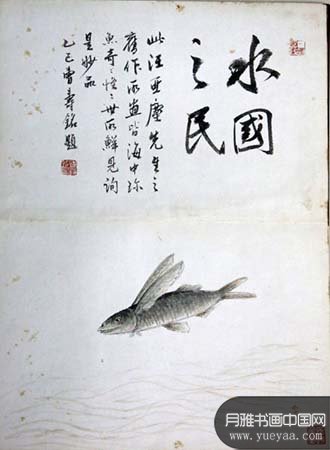 水國
之民
此汪亞塵先生之
舊作所畫皆海中珍
魚奇奇怪怪世所鮮見詢
是妙品
乙巳曹壽銘題
月雅书画中国网
www.yueyaa.com